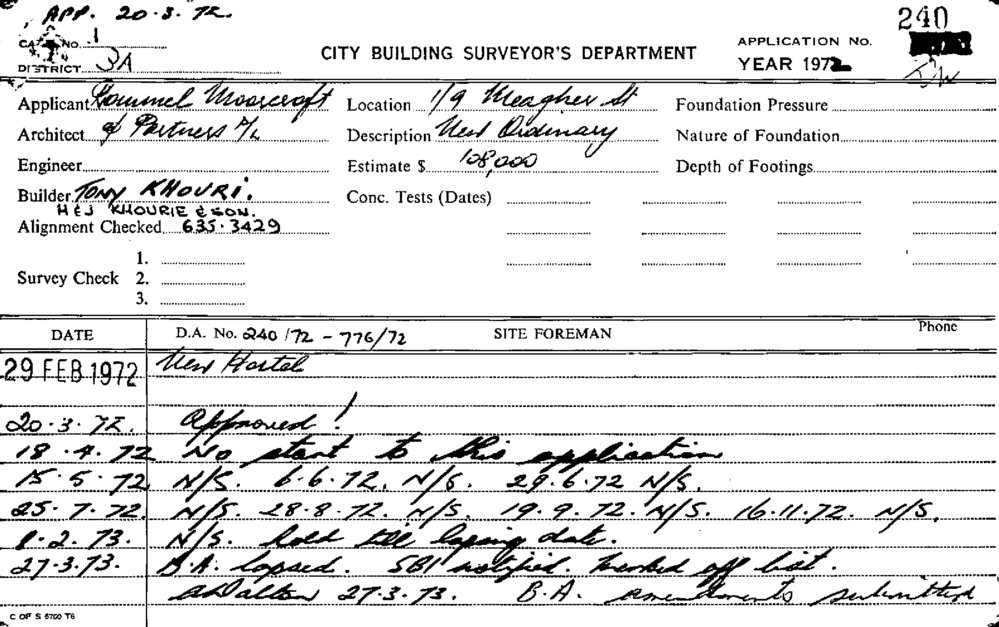 APP. 20.3.72.
240
CARD No. 1
CITY BUILDING SURVEYOR'S DEPARTMENT
APPLICATION No.
DISTRICT 3A
YEAR 1972
Applicant Rommel Moorcroft
Location 1/9 Meagher St
Foundation Pressure
Architect & Partners P/L
Description New Ordinary
Nature of Foundation
Engineer
Estimate $ 108,000
Depth of Footings
Builder TONY KHOURI.
Conc. Tests (Dates)
H & J KHOURIE & SON.
Alignment Checked 635.3429
1.
Survey Check 2.
3.
DATE D.A. No. 240/72 - 776/72 SITE FOREMAN Phone
29 FEB 1972 New Hostel
20.3.72. Approved!
18.4.72 No start to this application
15.5.72 N/S. 6.6.72. N/S. 29.6.72 N/S.
25.7.72. N/S. 28.8.72. N/S. 19.9.72. N/S. 16.11.72. N/S.
1.2.73. N/S. hold till lapsing date.
27.3.73. B.A. lapsed. SBI notified. Marked off list.
ADalton 27.3.73. B.A. amendments submitted
C OF S 5700 T6